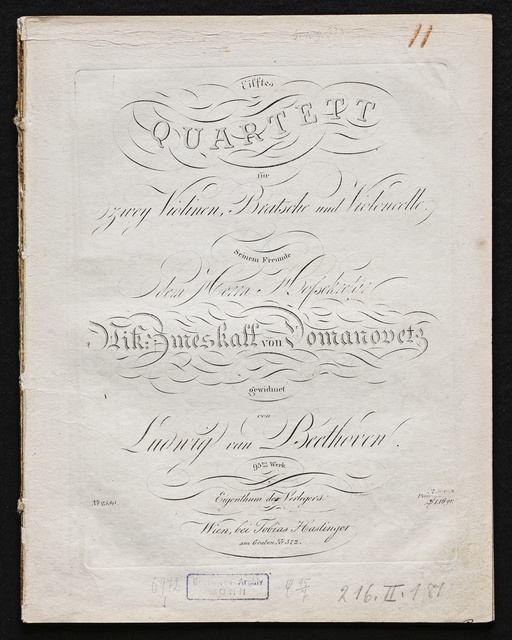 11
Eilftes
QUARTETT
für
zwey Violinen, Bratsche und Violoncelle.
Seinem Freunde
dem Herrn Hofsekretär
Nik: Zmeskall von Domanovetz
gewidmet
von
Ludwig van Beethoven.
95tes Werk
Eigenthum des Verlegers.
Wien, bei Tobias Haslinger
am Graben, Nr. 572.
6972
Archiv
BONN
216. II. 181